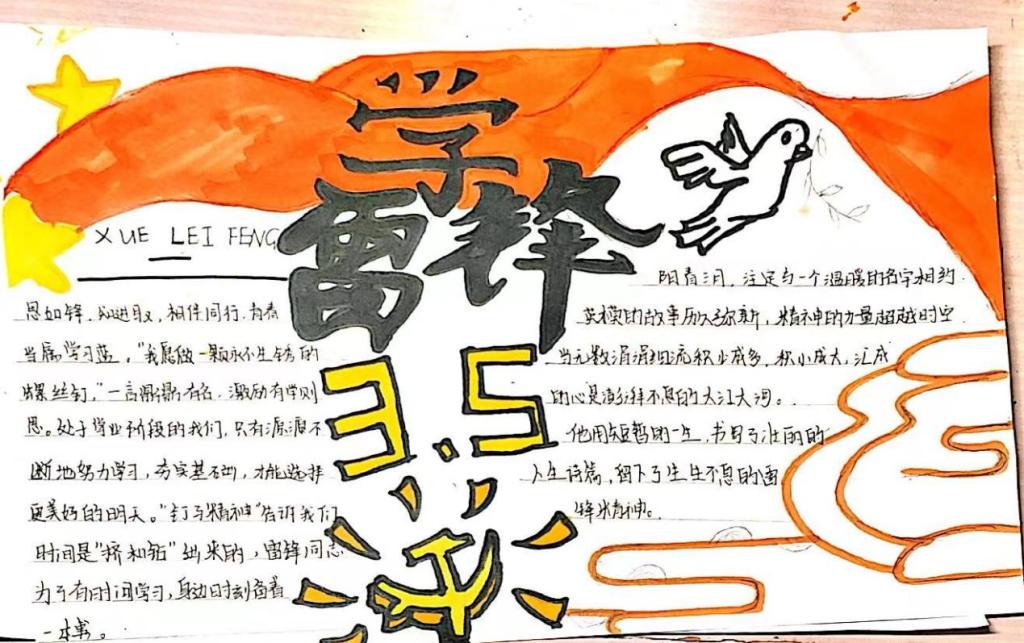 学
雷锋
3.5
XUE LEI FENG
思如锋，以进取，相伴同行，青春
当属学习蓝，"我愿做一颗永不生锈的
螺丝钉，"一言鼎鼎有名，激励有学则
思。处于学业阶段的我们，只有源源不
断地努力学习，夯实基础，才能选择
更美好的明天。"钉子精神"告诉我们
时间是"挤和钻"出来的，雷锋同志
为了有时间学习，身边时刻备着
一本书。
阳春三月，注定与一个温暖的名字相约.
英模的故事历久弥新，精神的力量超越时空
当无数涓涓细流积少成多，积小成大，汇成
的心是澎湃不息的大江大河。
他用短暂的一生，书写了壮丽的
人生诗篇，留下了生生不息的雷
锋精神。